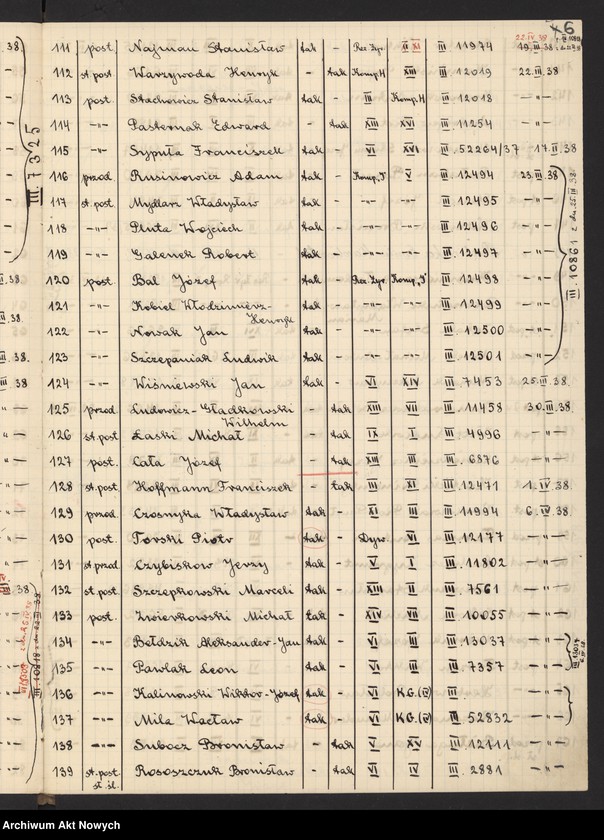 22.IV.38 6
111 post. Najman Stanisław tak - Rez. Zyr. II XI III 11974 19.III.38
112 st.post Warzywoda Henryk - tak Komp.H XIII III 12019 22.III.38
113 post. Stachowicz Stanisław tak - III Komp.H III 12018
114 -"- Pasternak Edward - tak XIII XVI III 11254
115 -"- Sypuła Franciszek tak - VI XVI III. 52264/37 17.II.38
116 przod. Rusinowicz Adam tak - V III 12494 23.III.38
117 st.post. Mydlarz Władysław tak - -"- -"- III. 12495 -"-
118 -"- Pluta Wojciech tak - -"- -"- III. 12496 -"-
119 -"- Galenek Robert tak - -"- -"- III. 12497 -"-
120 post. Bal Józef tak - Rez. Zyr. III 12498 -"-
121 -"- Kobiel Włodzimierz-
Henryk tak - -"- -"- III. 12499 -"-
122 -"- Nowak Jan tak - -"- -"- III. 12500 -"-
123 -"- Szczepaniak Ludwik tak - -"- -"- III. 12501 -"-
124 -"- Wiśniewski Jan tak - VI XIV III. 7453 25.III.38.
125 przod. Ludowicz-Gładkowski
Wilhelm - tak XIII VII III. 11458 30.III.38.
126 st.post. Łaski Michał - tak IX I III. 4996 -"-
127 post. Cała Józef - tak XIII III III. 6876 -"-
128 st.post. Hoffmann Franciszek - tak III XI III. 12471 1.IV.38.
129 przod. Czosnyka Władysław tak - XI III III. 11994 6.IV.38.
130 post. Torski Piotr tak - Dyw. VI III. 12177 -"-
131 st.przod. Czybiskow Jerzy tak - V I III. 11802 -"-
132 st.post. Szczepkowski Marceli tak - XIII II III. 7561 -"-
133 post. Zwierkowski Michał tak - XIV VII III. 10055 -"-
134 -"- Bełdzik Aleksander-Jan tak - VI III III. 13037 -"-
135 -"- Pawlak Leon tak - VI III III. 7357 -"-
136 -"- Kalinowski Wiktor-Józef tak - VI K.G.(IV) III. -"-
137 -"- Mila Wacław tak - VI K.G.(IV) III. 52832 -"-
138 -"- Subocz Bronisław - tak V XV III. 12111 -"-
139 st.post. Rososzczuk Bronisław - tak VI IV III. 2881 -"-
st.śl.
III. 7325
III. 10861 z dn. 25.III.38.
III. 10818 z dn. 22.III.38
Archiwum Akt Nowych